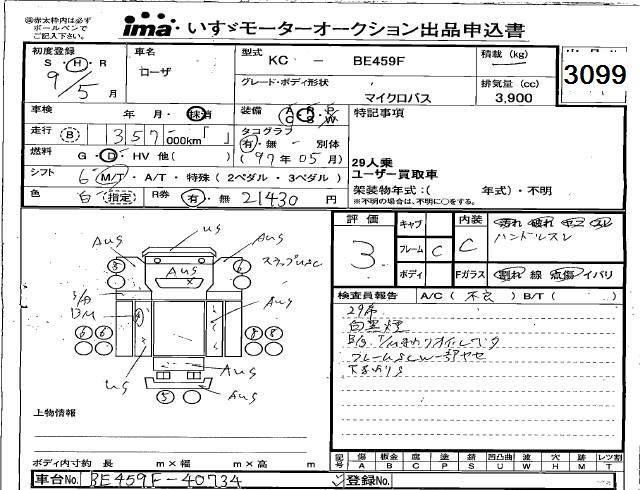 ㊟赤太枠内は必ず
ボールペンで
ご記入下さい。
ima いすゞモーターオークション出品申込書
初度登録
S・H・R
9/5月
車名
ローザ
型式
KC - BE459F
積載 (kg)
3099
グレード・ボディ形状
マイクロバス
排気量 (cc)
3,900
車検 年 月・抹消
装備 A C R S P W
特記事項
走行 B 357,000km「 」
タコグラフ
有・無 - 別体
(97年05月)
燃料 G・D・HV 他( )
29人乗
ユーザー買取車
シフト 6 M/T・A/T・特殊(2ペダル・3ペダル)
架装物年式:( 年式)・不明
※不明の場合は、不明に○をする。
色 白 指定 R券 有・無 21430 円
評価
3
キャブ
フレーム C
ボディ
内装
C
汚れ 破れ コゲ スレ
ハンドルスレ
Fガラス 割れ 線 点傷 イバリ
検査員報告 A/C ( 不良 ) B/T ( )
29席
白黒煙
下まわりS
AUS
US
AUS
AUS
ステップUSC
S/A
BM
AUS
US
AUS
AUS
8
6
6
6
8
8
5
上物情報
ボディ内寸約 長 m×幅 m×高 m
記号 傷A 板金B 腐C 塗P 錆S 凹凸曲U 波W 穴H 跡M レツ割T
車台No. BE459F-40734
登録No.